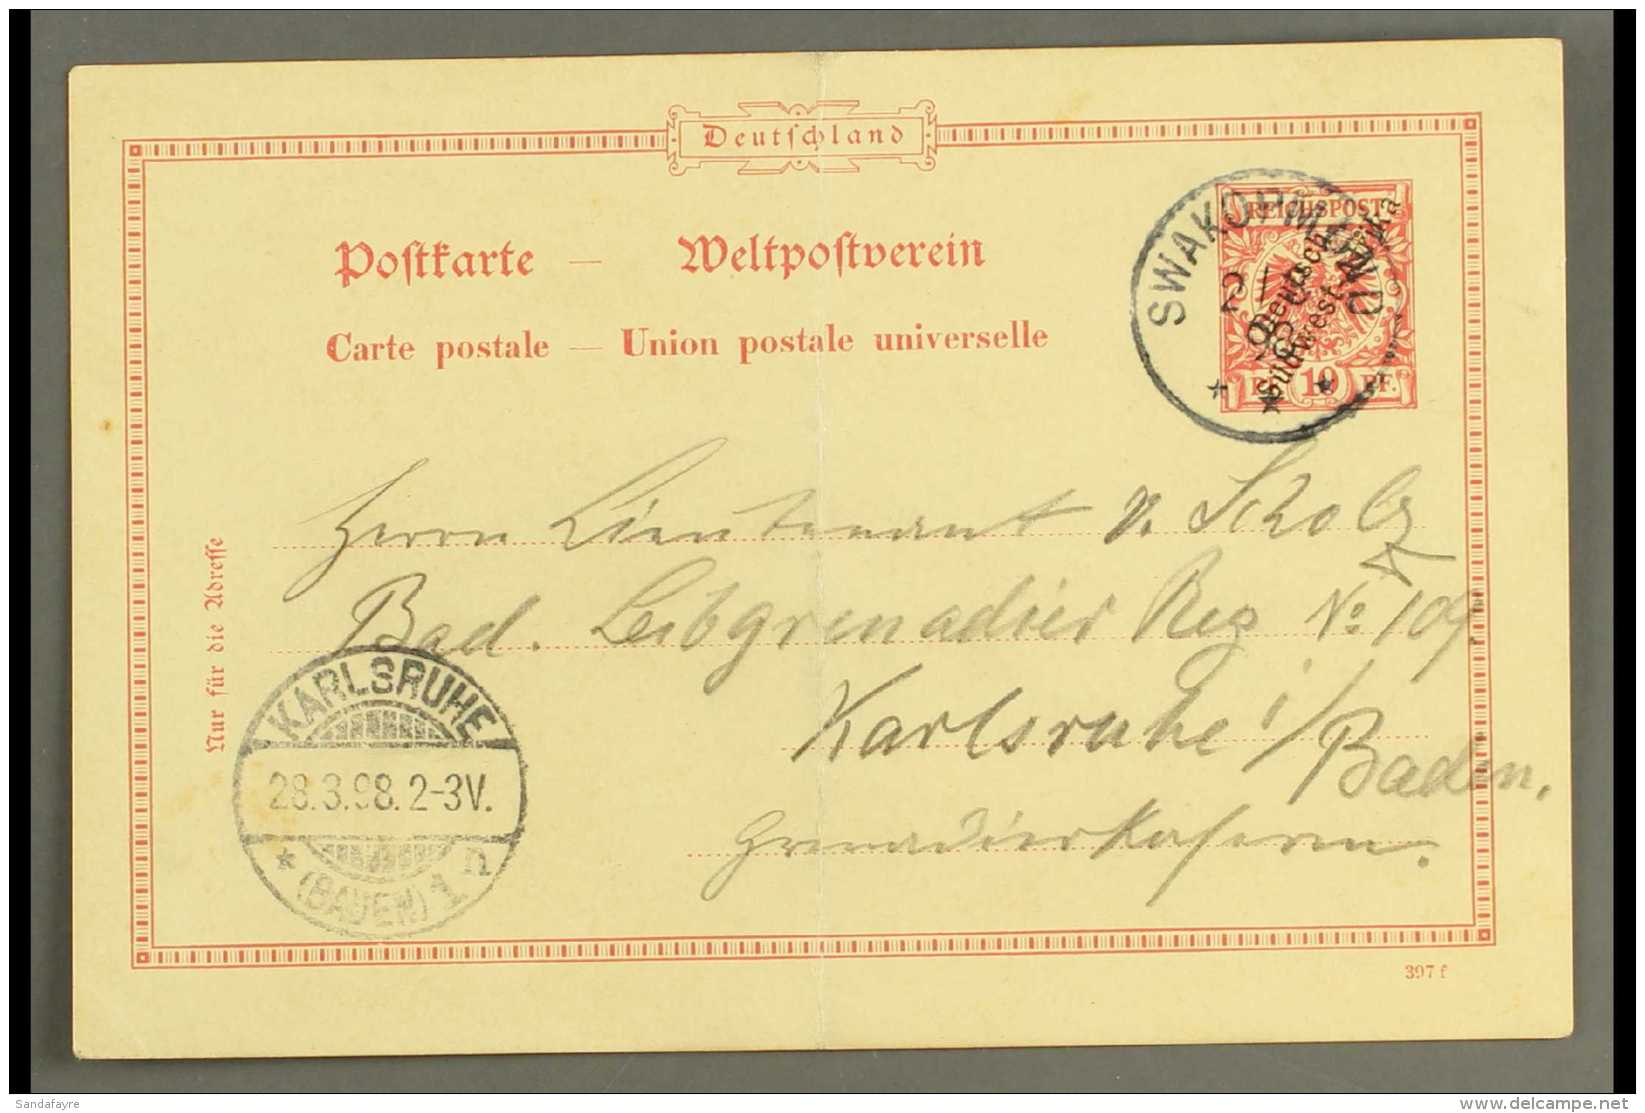 Deutschland
Postkarte — Weltpostverein
Carte postale — Union postale universelle
REICHSPOST
PF. 10 PF.
Deutsch-
Südwest-Afrika
SWAKOPMUND
2/
98
Herrn Lieutenant v. Scholz
Bad. Leibgrenadier Reg No 109
Karlsruhe i/Baden.
Grenadierkaserne.
Nur für die Adresse
KARLSRUHE
28.3.98.2-3V.
* (BADEN) 1 n
397 f
Sandafayre